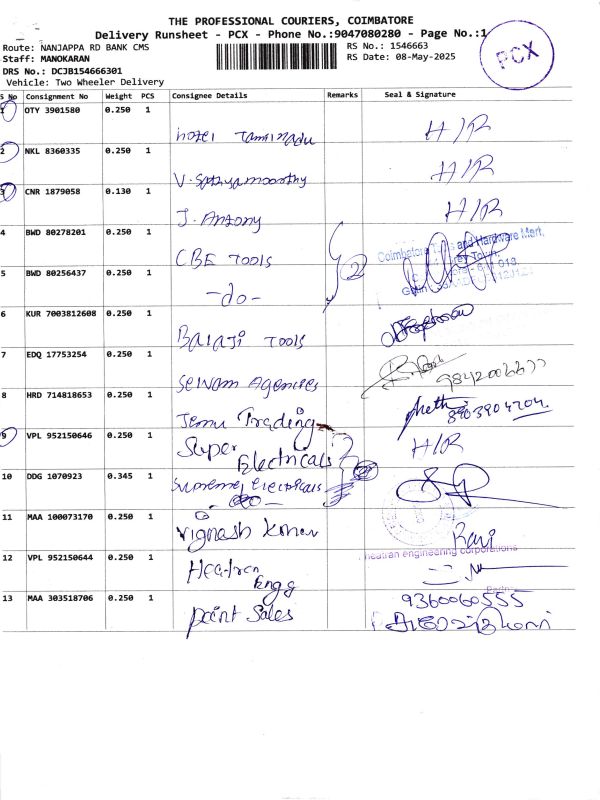 THE PROFESSIONAL COURIERS, COIMBATORE
Delivery Runsheet - PCX - Phone No.:9047080280 - Page No.:1
Route: NANJAPPA RD BANK CMS
RS No.: 1546663
Staff: MANOKARAN
RS Date: 08-May-2025
PCX
DRS No.: DCJB154666301
Vehicle: Two Wheeler Delivery
S No Consignment No Weight PCS Consignee Details Remarks Seal & Signature
1 OTY 3901580 0.250 1
hotel Tamilnadu H/R
2 NKL 8360335 0.250 1
V. Sathyamoorthy H/R
3 CNR 1879058 0.130 1
J. Antony H/R
4 BWD 80278201 0.250 1
CBE Tools 2
Coimbatore Tools and Hardware Mart,
5 BWD 80256437 0.250 1
-do-
6 KUR 7003812608 0.250 1
Balaji Tools
7 EDQ 17753254 0.250 1
Selvam Agencies
8 HRD 714818653 0.250 1
Jemu Trading 8903904204
9 VPL 952150646 0.250 1
Super Electricals H/R
10 DDG 1070923 0.345 1
Supreme Electricals
11 MAA 100073170 0.250 1
Vignash Ravi
12 VPL 952150644 0.250 1
Heatran Engg
heatran engineering corporations
13 MAA 303518706 0.250 1
Paint Sales 9360060555